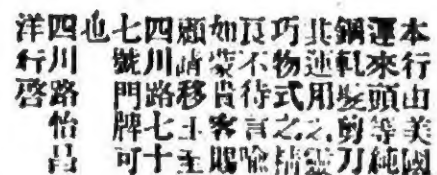 本行由美國
運來頭等純
鋼軋髮剪刀
其連用之靈
巧物式之精
良不待言喻
如蒙貴客賜
顧請移玉至
四川路七十
七號門牌可
也
四川路怡昌
洋行啓